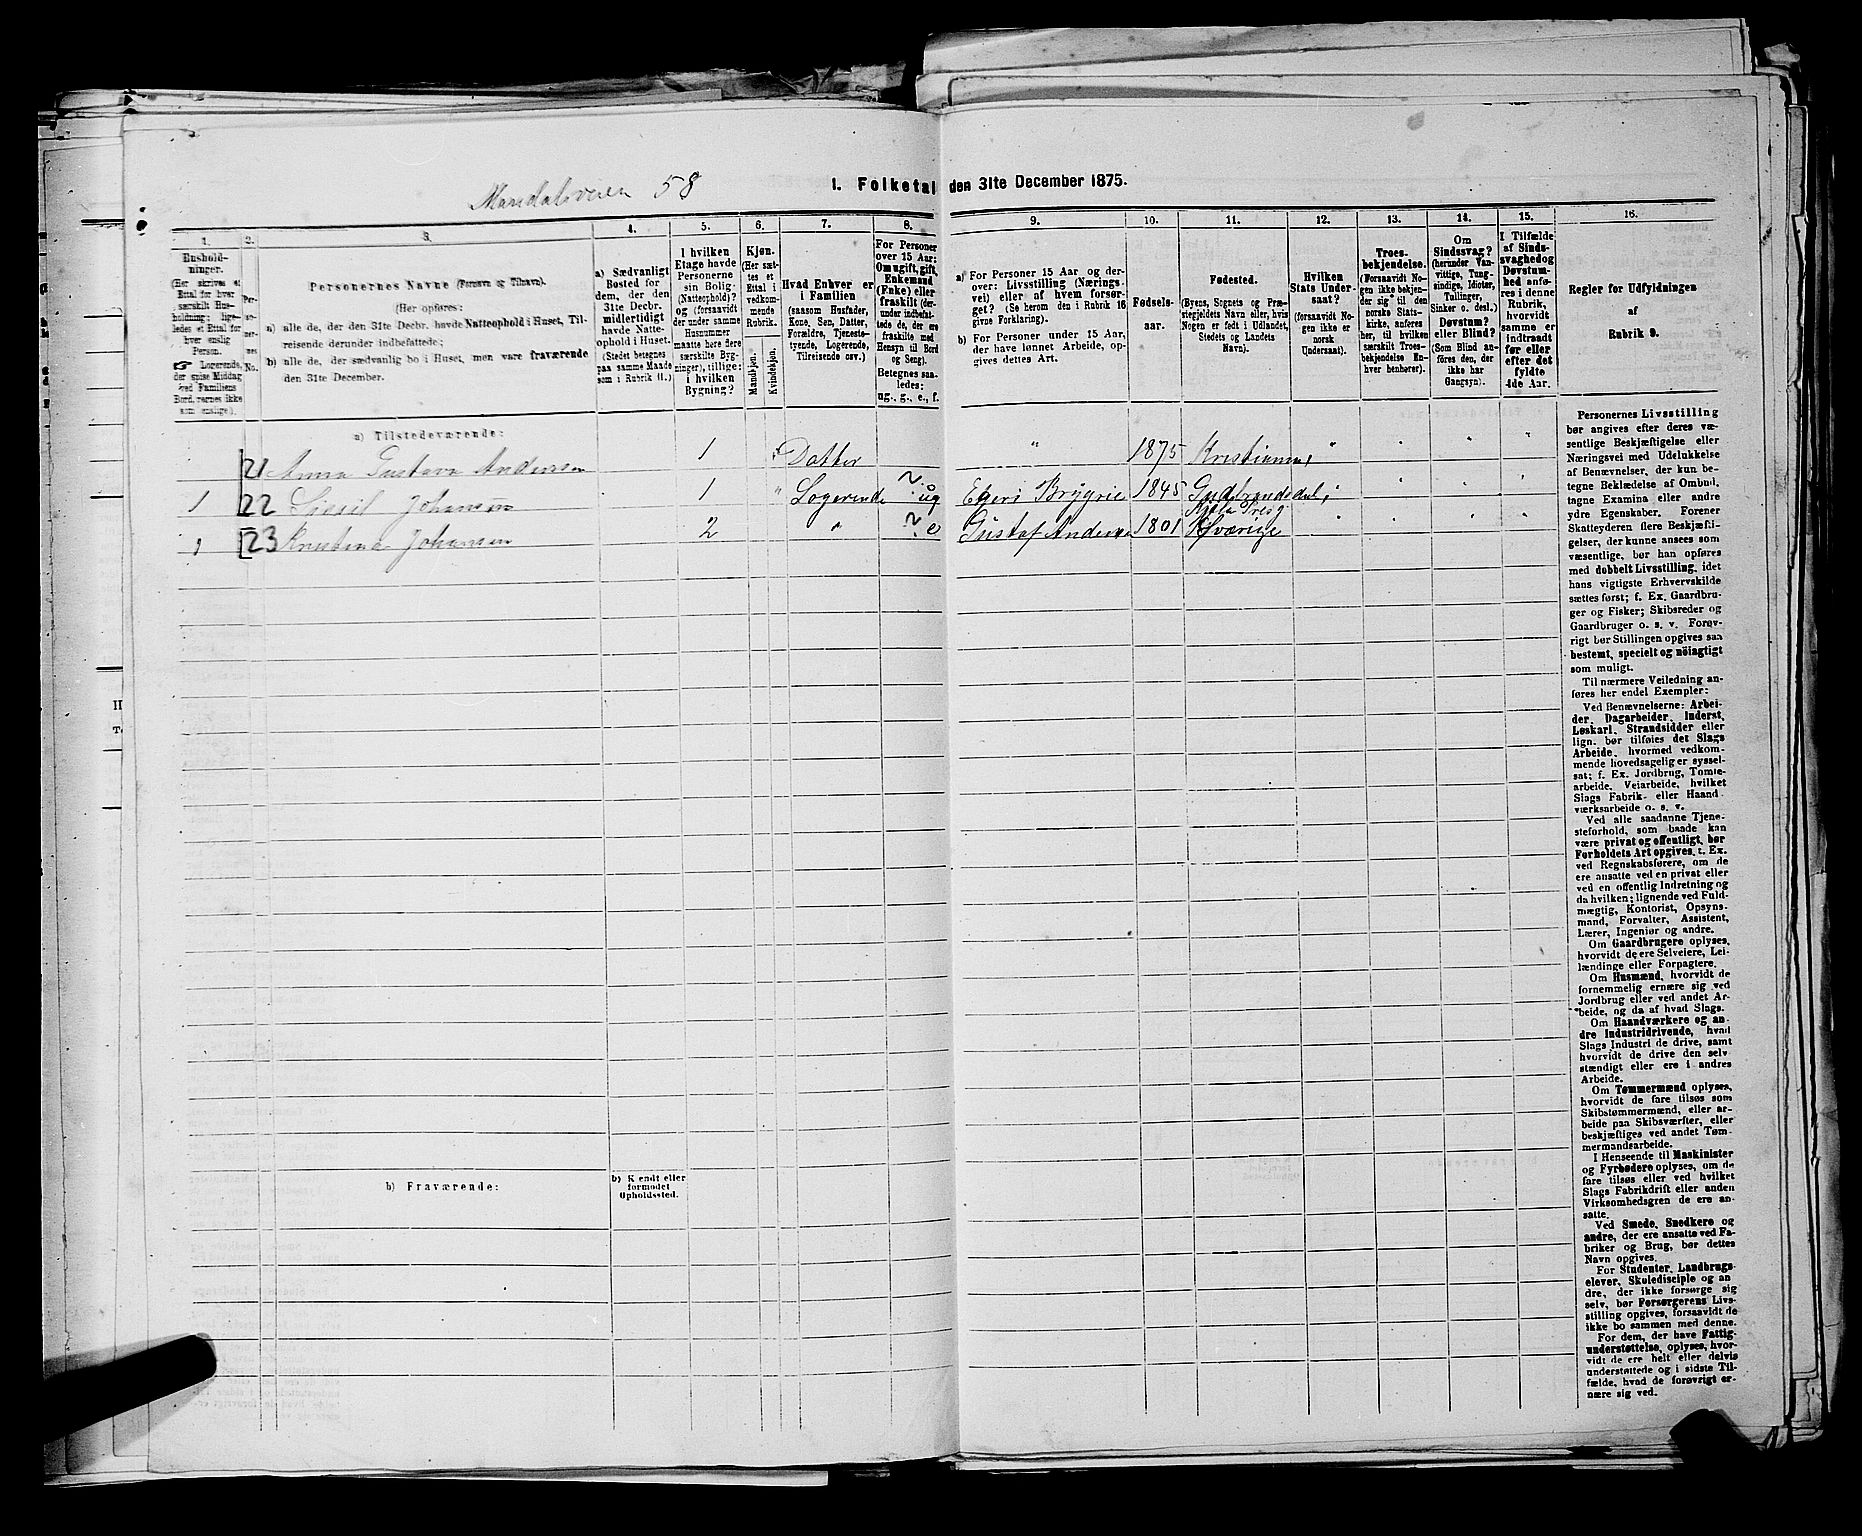 Mandalsveien 58
1. Folketal den 31te December 1875.
1.
Husholdninger.
(Her skrives et
Ettal for hver
særskilt Husholdning;
ligeledes et Ettal for
hver enslig
Person.
☞ Logerende,
der spise Middag
ved Familiens
Bord, regnes ikke
som enslige).
2.
Personernes
No.
3.
Personernes Navne (Fornavn og Tilnavn).
(Her opføres:
a) alle de, der den 31te Decbr. havde Natteophold i Huset, Tilreisende
derunder indbefattede;
b) alle de, der sædvanlig bo i Huset, men vare fraværende
den 31te December.
4.
a) Sædvanligt
Bosted for
dem, der den
31te Decbr.
midlertidigt
havde Natteophold
i Huset.
(Stedet betegnes
paa samme Maade
som i Rubrik 11.)
5.
I hvilken
Etage havde
Personerne
sin Bolig
(Natteophold)?
og (forsaavidt
der under samme
Husnummer
maatte høre flere
særskilte Bygninger),
tillige:
i hvilken
Bygning?
6.
Kjøn.
(Her sættes
et
Ettal i
vedkommende
Rubrik.
Mandkjøn.
Kvindekjøn.
7.
Hvad Enhver er
i Familien
(saasom Husfader,
Kone, Søn, Datter,
Forældre, Tjenestetyende,
Logerende,
Tilreisende osv.).
8.
For Personer
over 15 Aar:
Om ugift, gift,
Enkemand
(Enke) eller
fraskilt (derunder
indbefattede
de, der ere
fraskilte med
Hensyn til Bord
og Seng).
Betegnes saaledes:
ug., g., e., f.
9.
a) For Personer 15 Aar og derover:
Livsstilling (Næringsvei)
eller af hvem forsørget?
(Se herom den i Rubrik 16
givne Forklaring).
b) For Personer under 15 Aar,
der have lønnet Arbeide, opgives
dettes Art.
10.
Fødselsaar.
11.
Fødested.
(Byens, Sognets og Præstegjeldets
Navn eller, hvis
Nogen er født i Udlandet,
Stedets og Landets
Navn).
12.
Hvilken
Stats Undersaat?
(forsaavidt Nogen
ikke er
norsk
Undersaat).
13.
Troesbekjendelse.
(Forsaavidt Nogen
ikke bekjender
sig til den
norske Statskirke,
anføres
her, til hvilken
særskilt Troesbekjendelse
Enhver
henhører).
14.
Om
Sindssvag?
(herunder Vanvittige,
Tungsindige,
Idioter,
Tullinger,
Sinker o. desl.)
Døvstum?
eller Blind?
(Som Blind anføres
den, der
ikke har
Gangsyn).
15.
I Tilfælde
af Sindssvaghed
og
Døvstumhed
anføres
i denne
Rubrik,
hvorvidt
samme er
indtraadt
før eller
efter det
fyldte
4de Aar.
16.
Regler for Udfyldningen
af
Rubrik 9.
a) Tilstedeværende:
21 Anna Gustava Andersen 1 Datter " 1875 Kristiania
1 22 Sissil Johansen 1 Logerende ug 1845 Gudbrandsdal
1 23 Kristina Johansen 2 " e Gustaf Andersen 1801 Sværige
b) Fraværende:
b) Kjendt eller
formodet
Opholdssted.
Personernes Livsstilling
bør angives efter deres væsentlige
Beskjæftigelse eller
Næringsvei med Udelukkelse
af Benævnelser, der kun betegne
Beklædelse af Ombud,
tagne Examina eller andre
ydre Egenskaber. Forener
Skatteyderen flere Beskjæftigelser,
der kunne ansees som
væsentlige, bør han opføres
med dobbelt Livsstilling, idet
hans vigtigste Erhvervskilde
sættes først; f. Ex. Gaardbruger
og Fisker; Skibsreder og
Gaardbruger o. s. v. Forøvrigt
bør Stillingen opgives saa
bestemt, specielt og nøiagtigt
som muligt.
Til nærmere Veiledning anføres
her endel Exempler:
Ved Benævnelserne: Arbeider,
Dagarbeider, Inderst,
Løskarl, Strandsidder eller
lign. bør tilføies det Slags
Arbeide, hvormed vedkommende
hovedsagelig er sysselsat;
f. Ex. Jordbrug, Tomtearbeide,
Veiarbeide, hvilket
Slags Fabrik- eller Haandværksarbeide
o. s. v.
Ved alle saadanne Tjenesteforhold,
som baade kan
være privat og offentligt, bør
Forholdets Art opgives, t. Ex.
ved Regnskabsførere, om de
ere ansatte ved en privat eller
ved en offentlig Indretning og
da hvilken; lignende ved Fuldmægtig,
Kontorist, Opsynsmand,
Forvalter, Assistent,
Lærer, Ingeniør og andre.
Om Gaardbrugere oplyses,
hvorvidt de ere Selveiere, Leilændinge
eller Forpagtere.
Om Husmænd, hvorvidt de
fornemmelig ernære sig ved
Jordbrug eller ved andet Arbeide,
og da af hvad Slags.
Om Haandværkere og andre
Industridrivende, hvad
Slags Industri de drive, samt
hvorvidt de drive den selvstændigt
eller ere i andres
Arbeide.
Om Tømmermænd oplyses,
hvorvidt de fare tilsøs som
Skibstømmermænd, eller arbeide
paa Skibsværfter, eller
beskjæftiges ved andet Tømmermandsarbeide.
I Henseende til Maskinister
og Fyrbødere oplyses, om de
fare tilsøs eller ved hvilket
Slags Fabrikdrift eller anden
Virksomhedsgren de ere ansatte.
Ved Smede, Snedkere og
andre, der ere ansatte ved Fabriker
og Brug, bør dettes
Navn opgives.
For Studenter, Landbrugselever,
Skoledisciple og andre,
der ikke forsørge sig
selv, bør Forsørgerens Livsstilling
opgives, forsaavidt de
ikke bo sammen med denne.
For dem, der have Fattigunderstøttelse,
oplyses, hvorvidt
de ere helt eller delvis
understøttede og i sidste Tilfælde,
hvad de forøvrigt ernære
sig ved.